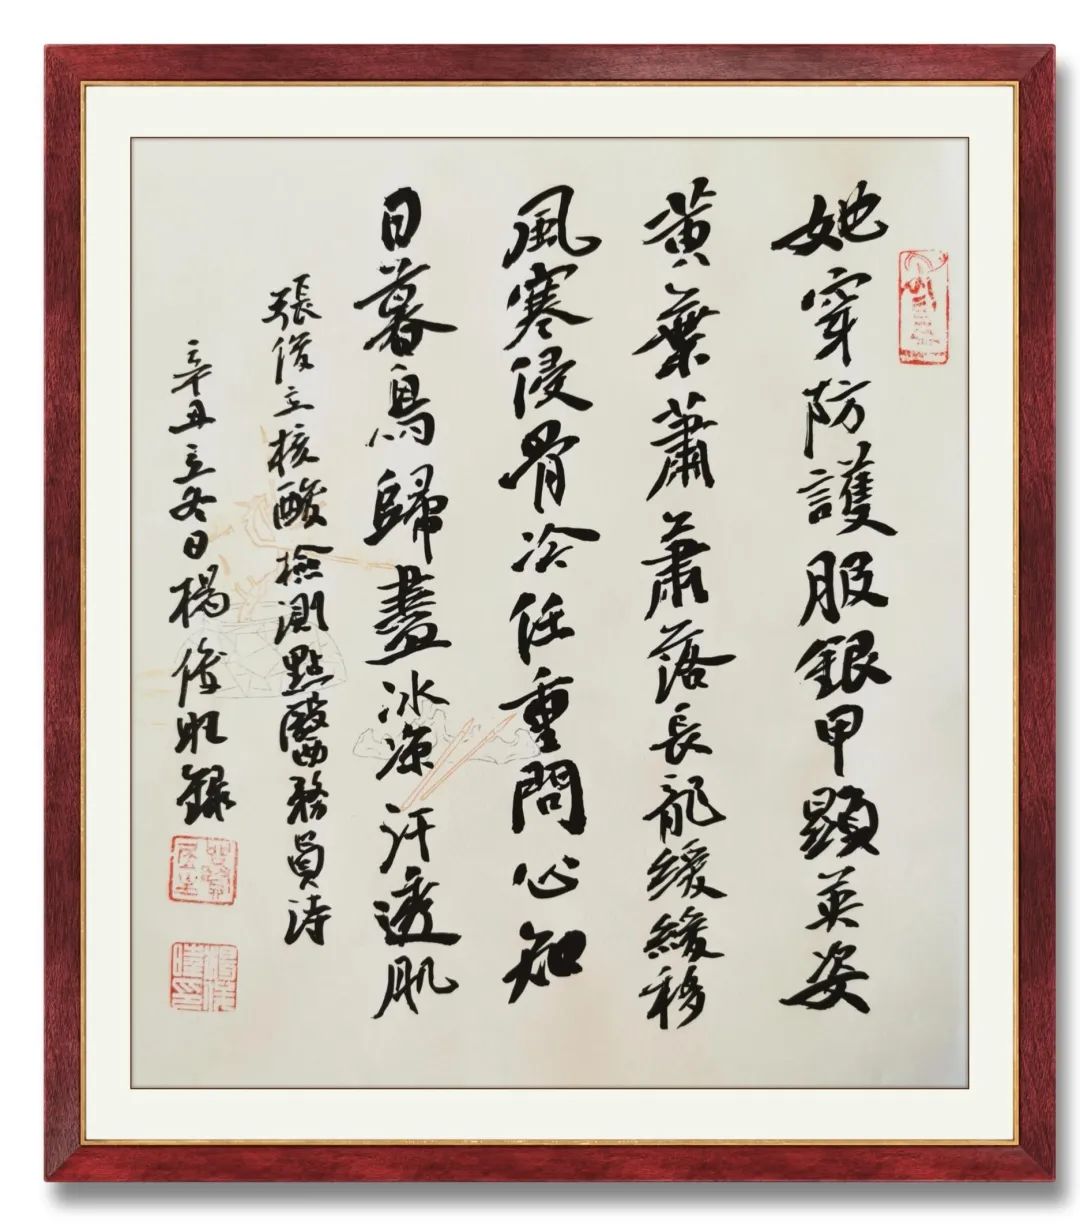 她穿防護服銀甲顯英姿
黃葉蕭蕭落長龍緩緩移
風寒侵骨冷任重問心知
日暮鳥歸盡冰涼汗透肌
張俊立核酸檢測點醫務員詩
辛丑立冬日楊俊旺錄